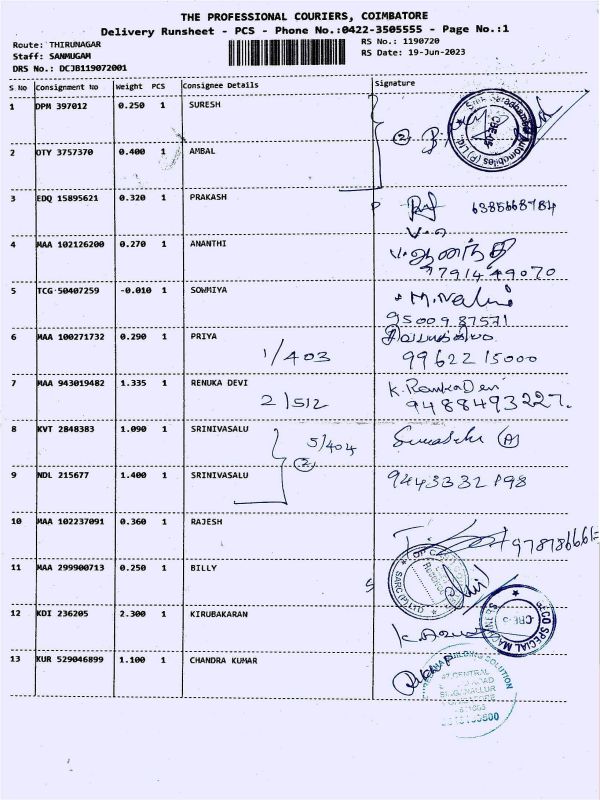 THE PROFESSIONAL COURIERS, COIMBATORE
Delivery Runsheet - PCS - Phone No.:0422-3505555 - Page No.:1
Route: THIRUNAGAR
RS No.: 1190720
Staff: SANMUGAM
RS Date: 19-Jun-2023
DRS No.: DCJB119072001
S No Consignment No Weight PCS Consignee Details Signature
1 DPM 397012 0.250 1 SURESH
2 OTY 3757370 0.400 1 AMBAL
3 EDQ 15895621 0.320 1 PRAKASH
4 MAA 102126200 0.270 1 ANANTHI
V. ஆனந்தி
7791449070
5 TCG 50407259 -0.010 1 SOWMIYA
9500987571
6 MAA 100271732 0.290 1 PRIYA
1/403
99622 15000
7 MAA 943019482 1.335 1 RENUKA DEVI
2/512
9488493227.
8 KVT 2848383 1.090 1 SRINIVASALU
5/404
2
9 NDL 215677 1.400 1 SRINIVASALU
9443332198
10 MAA 102237091 0.360 1 RAJESH
11 MAA 299900713 0.250 1 BILLY
12 KDI 236205 2.300 1 KIRUBAKARAN
13 KUR 529046899 1.100 1 CHANDRA KUMAR